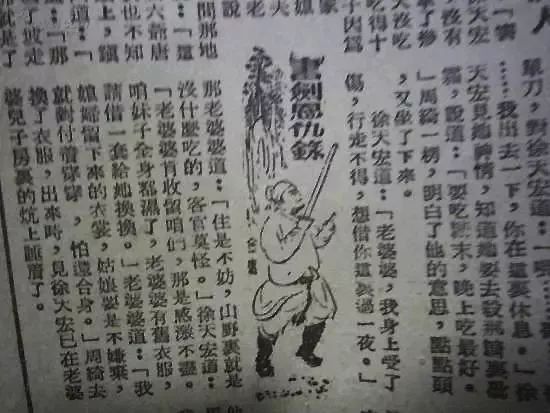 人
「賽
徐天宏
沒有
吃得十
子因爲
家
夫
老
說
間那地
六爺唐
也不知
上，鎭
道：「
「那
單刀，對徐天宏道：「嗯…
…我出去一下，你在這裏休息。」徐
天宏見她神情，知道她要去殺
霜，說道：「要吃糖末，晚上吃最好。
」周綺一楞，明白了他的意思，點點頭
，又坐了下來。
徐天宏道：「老婆婆，我身上受了
傷，行走不得，想借你這裏過一夜。」
書劍恩仇錄
那老婆婆道：「住是不妨，山野裏就是
沒什麼吃的，客官莫怪。」徐天宏道：
「老婆婆肯收留咱們，那是感激不盡。
咱妹子全身都濕了，老婆婆有舊衣服，
請借一套給她換換。」老婆婆道：「我
媳婦留下來的衣裳，姑娘要是不嫌棄，
就對付着穿穿，怕還合身。」周綺去
換了衣服，出來時，見徐天宏已在老婆
婆兒子房裏的炕上睡着了。